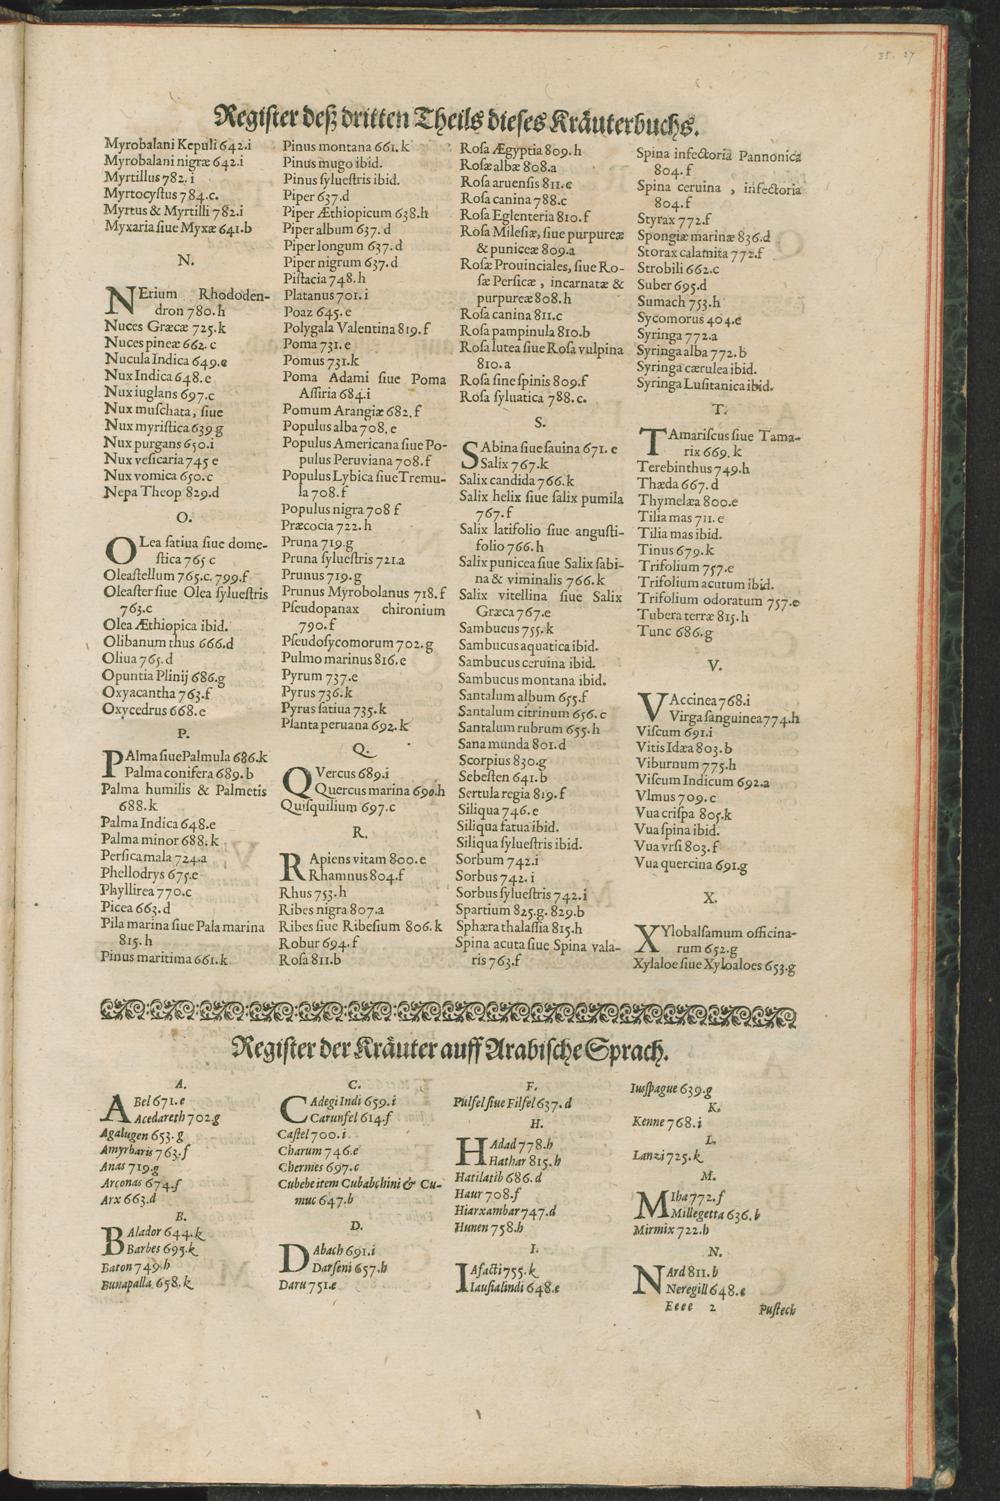 35. 27
Regiſter deß dritten Theils dieſes Kräuterbuchs.
Myrobalani Kepuli 642.i
Myrobalani nigræ 642.i
Myrtillus 782.i
Myrtocyſtus 784.c.
Myrtus & Myrtilli 782.i
Myxaria ſiue Myxæ 641.b
N.
NErium Rhododen-
dron 780.h
Nuces Græcæ 725.k
Nuces pineæ 662.c
Nucula Indica 649.e
Nux Indica 648.e
Nux iuglans 697.c
Nux muſchata, ſiue
Nux myriſtica 639 g
Nux purgans 650.i
Nux veſicaria 745 e
Nux vomica 650.c
Nepa Theop 829.d
O.
OLea ſatiua ſiue dome-
ſtica 765 c
Oleaſtellum 765.c. 799.f
Oleaſter ſiue Olea ſylueſtris
763.c
Olea Æthiopica ibid.
Olibanum thus 666.d
Oliua 765.d
Opuntia Plinij 686.g
Oxyacantha 763.f
Oxycedrus 668.e
P.
PAlma ſiue Palmula 686.k
Palma conifera 689.b
Palma humilis & Palmetis
688.k
Palma Indica 648.e
Palma minor 688.k
Perſica mala 724.a
Phellodrys 675.e
Phyllirea 770.c
Picea 663.d
Pila marina ſiue Pala marina
815.h
Pinus maritima 661.k
Pinus montana 661.k
Pinus mugo ibid.
Pinus ſylueſtris ibid.
Piper 637.d
Piper Æthiopicum 638.h
Piper album 637.d
Piper longum 637.d
Piper nigrum 637.d
Piſtacia 748.h
Platanus 701.i
Poaz 645.e
Polygala Valentina 819.f
Poma 731.e
Pomus 731.k
Poma Adami ſiue Poma
Aſſiria 684.i
Pomum Arangiæ 682.f
Populus alba 708.e
Populus Americana ſiue Po-
pulus Peruviana 708.f
Populus Lybica ſiue Tremu-
la 708.f
Populus nigra 708 f
Præcocia 722.h
Pruna 719.g
Pruna ſylueſtris 721.a
Prunus 719.g
Prunus Myrobolanus 718.f
Pſeudopanax chironium
790.f
Pſeudoſycomorum 702.g
Pulmo marinus 816.e
Pyrum 737.e
Pyrus 736.k
Pyrus ſatiua 735.k
Planta peruana 692.k
Q.
QVercus 689.i
Quercus marina 690.h
Quiſquilium 697.c
R.
RApiens vitam 800.e
Rhamnus 804.f
Rhus 753.h
Ribes nigra 807.a
Ribes ſiue Ribeſium 806.k
Robur 694.f
Roſa 811.b
Roſa Ægyptia 809.h
Roſæ albæ 808.a
Roſa aruenſis 811.c
Roſa canina 788.c
Roſa Eglenteria 810.f
Roſa Mileſiæ, ſiue purpureæ
& puniceæ 809.a
Roſæ Prouinciales, ſiue Ro-
ſæ Perſicæ, incarnatæ &
purpureæ 808.h
Roſa canina 811.c
Roſa pampinula 810.b
Roſa lutea ſiue Roſa vulpina
810.a
Roſa ſine ſpinis 809.f
Roſa ſyluatica 788.c.
S.
SAbina ſiue ſauina 671.e
Salix 767.k
Salix candida 766.k
Salix helix ſiue ſalix pumila
767.f
Salix latifolio ſiue anguſti-
folio 766.h
Salix punicea ſiue Salix ſabi-
na & viminalis 766.k
Salix vitellina ſiue Salix
Græca 767.e
Sambucus 755.k
Sambucus aquatica ibid.
Sambucus ceruina ibid.
Sambucus montana ibid.
Santalum album 655.f
Santalum citrinum 656.c
Santalum rubrum 655.h
Sana munda 801.d
Scorpius 830.g
Sebeſten 641.b
Sertula regia 819.f
Siliqua 746.e
Siliqua fatua ibid.
Siliqua ſylueſtris ibid.
Sorbum 742.i
Sorbus 742.i
Sorbus ſylueſtris 742.i
Spartium 825.g. 829.b
Sphæra thalaſſia 815.h
Spina acuta ſiue Spina vala-
ris 763.f
Spina infectoria Pannonica
804.f
Spina ceruina, infectoria
804.f
Styrax 772.f
Spongiæ marinæ 836.d
Storax calamita 772.f
Strobili 662.c
Suber 695.d
Sumach 753.h
Sycomorus 404.e
Syringa 772.a
Syringa alba 772.b
Syringa cærulea ibid.
Syringa Luſitanica ibid.
T.
TAmariſcus ſiue Tama-
rix 669.k
Terebinthus 749.h
Thæda 667.d
Thymelæa 800.e
Tilia mas 711.e
Tilia mas ibid.
Tinus 679.k
Trifolium 757.e
Trifolium acutum ibid.
Trifolium odoratum 757.e
Tubera terræ 815.h
Tunc 686.g
V.
VAccinea 768.i
Virga ſanguinea 774.h
Viſcum 691.i
Vitis Idæa 803.b
Viburnum 775.h
Viſcum Indicum 692.a
Vlmus 709.c
Vua criſpa 805.k
Vua ſpina ibid.
Vua vrſi 803.f
Vua quercina 691.g
X.
XYlobalſamum officina-
rum 652.g
Xylaloe ſiue Xyloaloes 653.g
Regiſter der Kräuter auff Arabiſche Sprach.
A.
ABel 671.e
Acedareth 702.g
Agalugen 653.g
Amyrbaris 763.f
Anas 719.g
Arconas 674.f
Arx 663.d
B.
BAlador 644.k
Barbes 695.k
Baton 749.h
Bunapalla 658.k
C.
CAdegi Indi 659.i
Carunfel 614.f
Caſtel 700.i
Charum 746.e
Chermes 697.c
Cubebe item Cubabchini & Cu-
muc 647.b
D.
DAbach 691.i
Darſeni 657.h
Daru 751.e
F.
Fulfel ſiue Filfel 637.d
H.
HAdad 778.h
Hathar 815.h
Hatilatib 686.d
Haur 708.f
Hiarxambar 747.d
Hunen 758.h
I.
IAfacti 755.k
Iauſialindi 648.e
Iuſſpague 639.g
K.
Kenne 768.i
L.
Lanzi 725.k
M.
MIha 772.f
Millegetta 636.b
Mirmix 722.h
N.
NArd 811.b
Neregill 648.e
Eeee 2
Puſtech